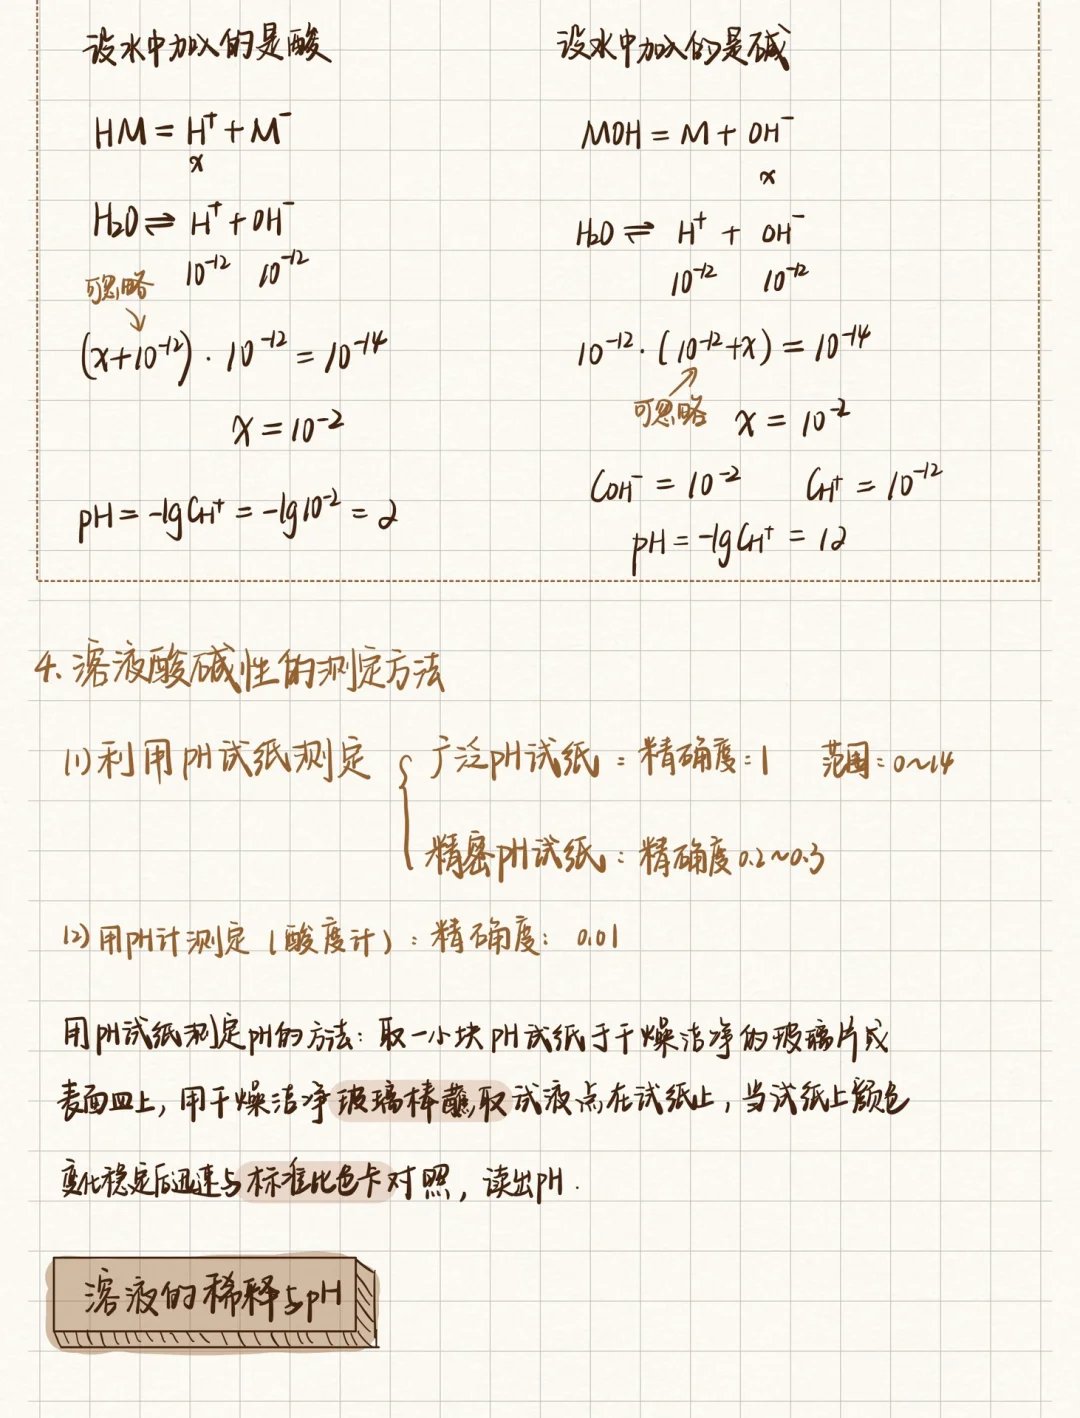 设水中加入的是酸
HM = H⁺ + M⁻
x
H₂O ⇌ H⁺ + OH⁻
10⁻¹² 10⁻¹²
可忽略
(x+10⁻¹²) · 10⁻¹² = 10⁻¹⁴
x = 10⁻²
pH = -lgCH⁺ = -lg10⁻² = 2
设水中加入的是碱
MOH = M + OH⁻
x
H₂O ⇌ H⁺ + OH⁻
10⁻¹² 10⁻¹²
10⁻¹² · (10⁻¹²+x) = 10⁻¹⁴
可忽略 x = 10⁻²
COH⁻ = 10⁻² CH⁺ = 10⁻¹²
pH = -lgCH⁺ = 12
4. 溶液酸碱性的测定方法
(1) 利用pH试纸测定 { 广泛pH试纸：精确度：1 范围：0~14
精密pH试纸：精确度0.2~0.3
(2) 用pH计测定（酸度计）：精确度：0.01
用pH试纸测定pH的方法：取一小块pH试纸于干燥洁净的玻璃片或
表面皿上，用干燥洁净玻璃棒蘸取试液点在试纸上，当试纸上颜色
变化稳定后迅速与标准比色卡对照，读出pH.
溶液的稀释与pH